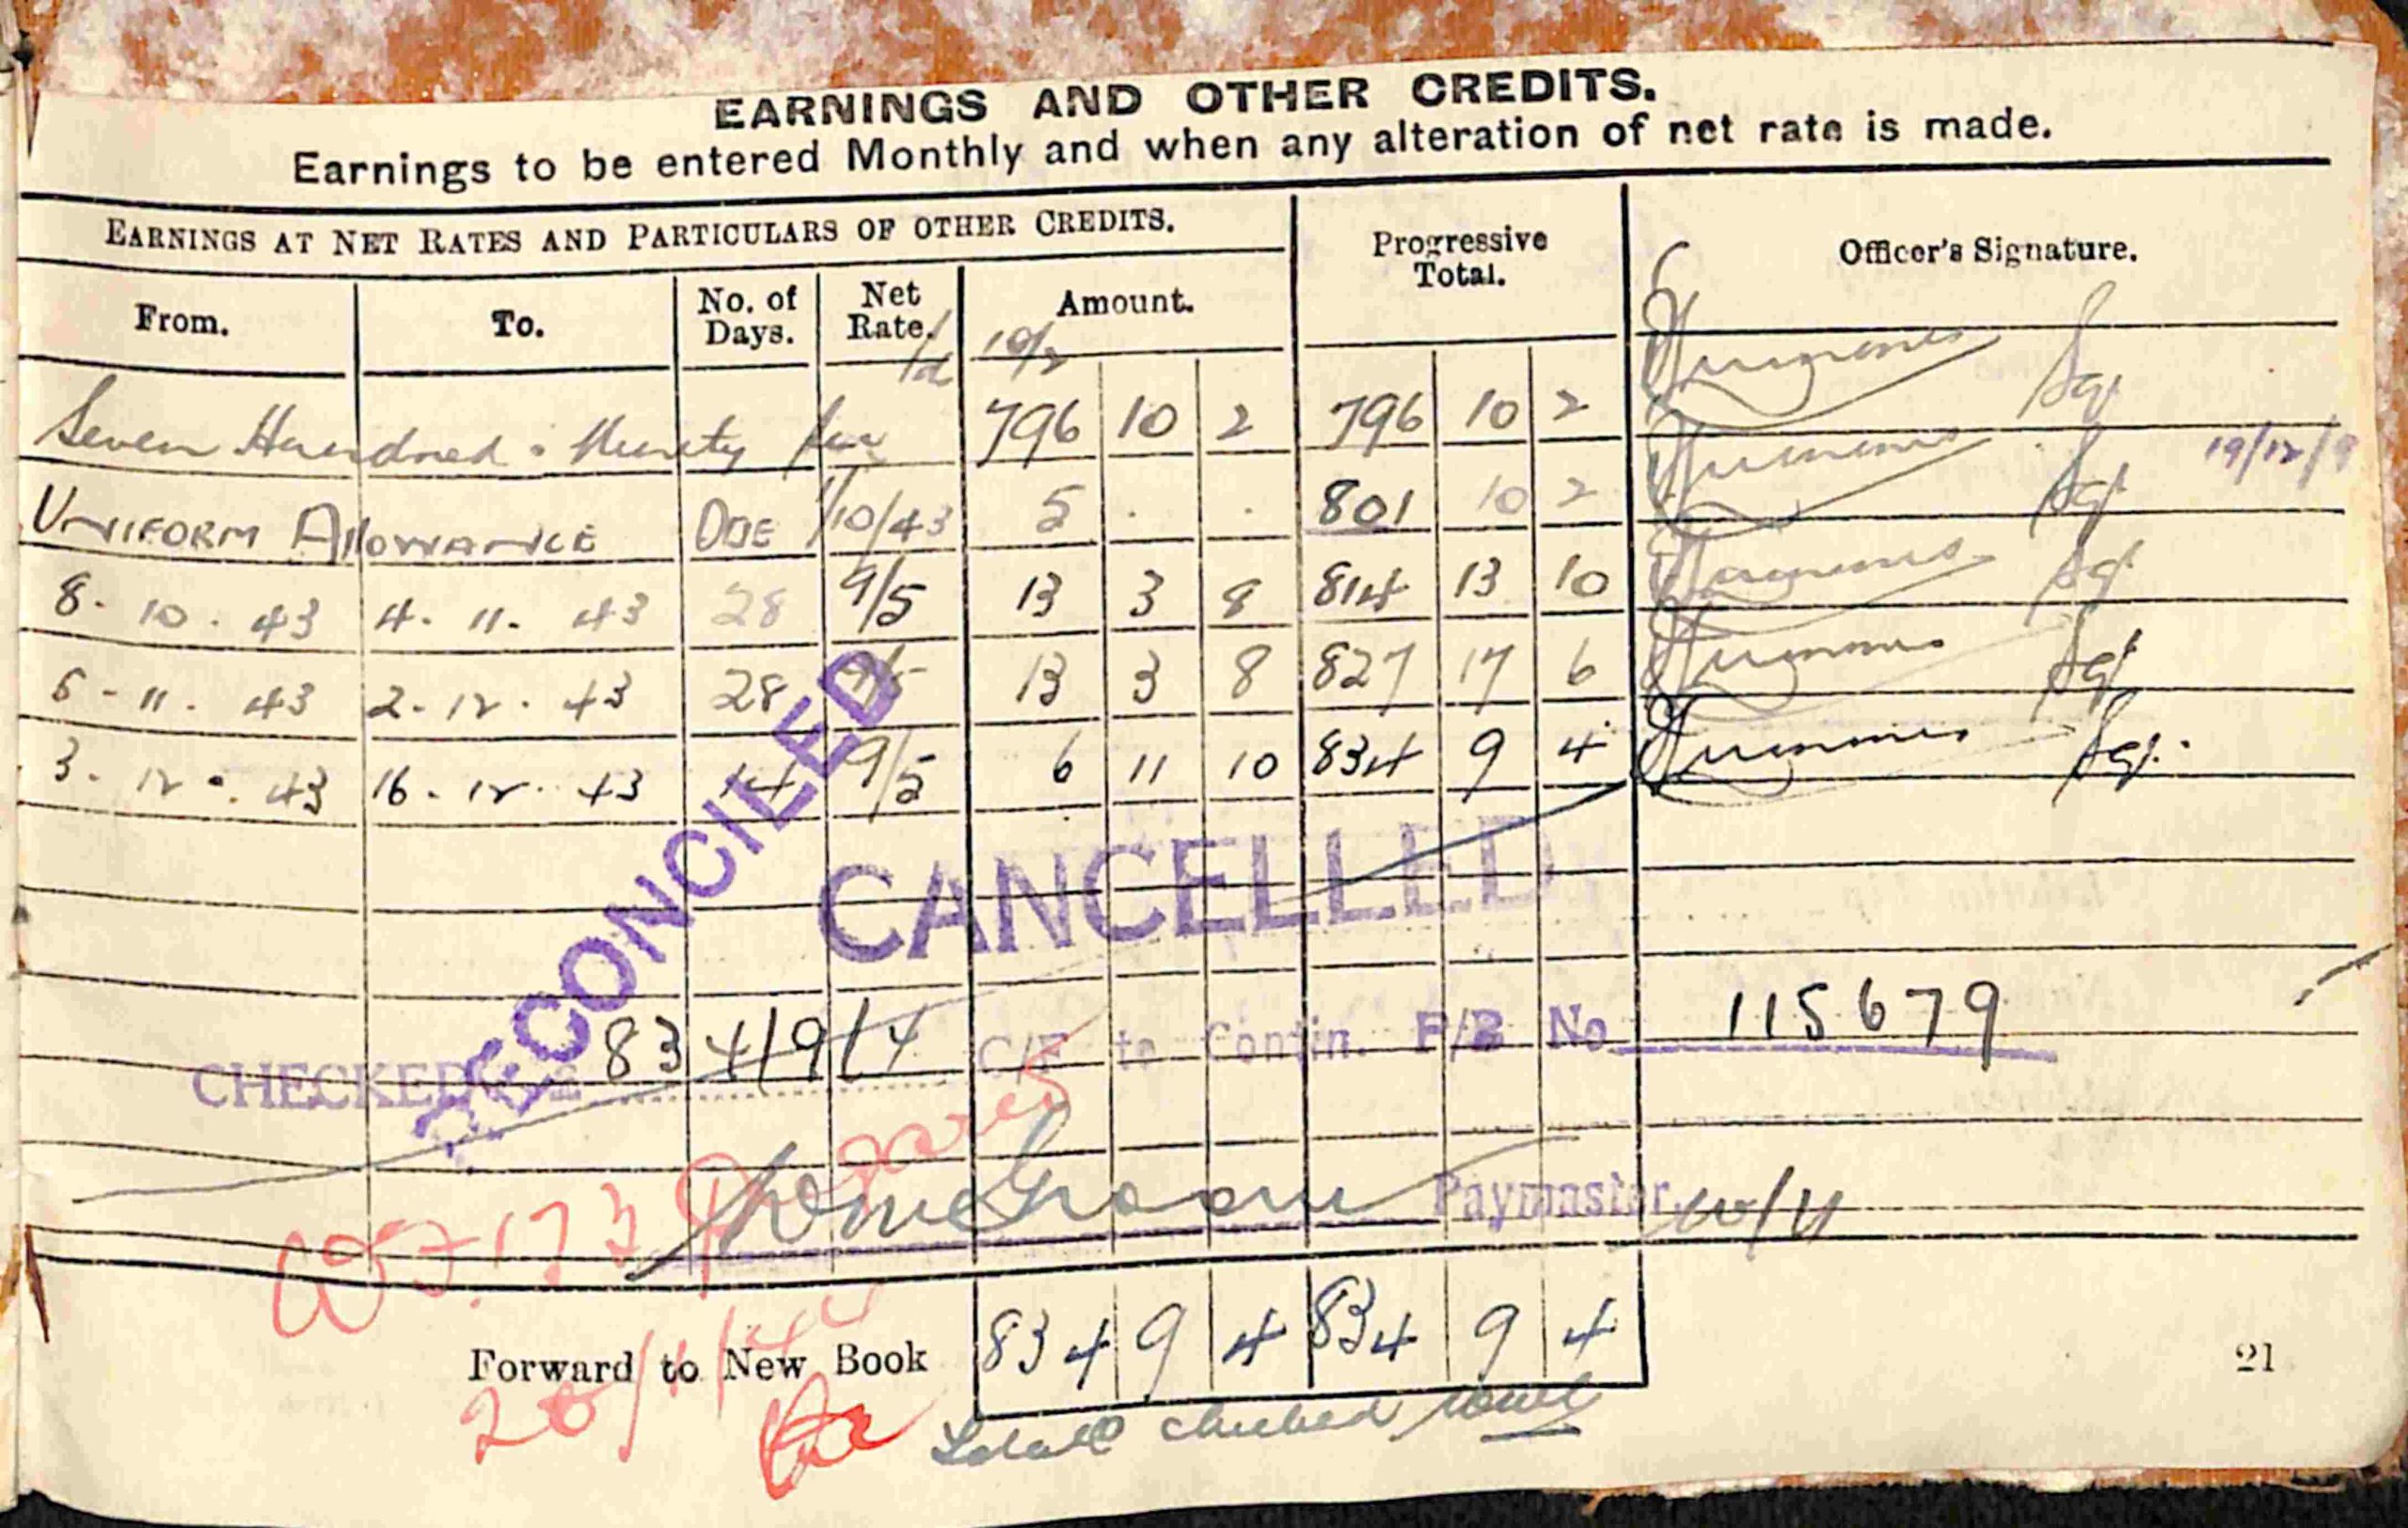 EARNINGS AND OTHER CREDITS.
Earnings to be entered Monthly and when any alteration of net rate is made.
EARNINGS AT NET RATES AND PARTICULARS OF OTHER CREDITS. Progressive Total. Officer's Signature.
From. To. No. of Days. Net Rate. Amount.
10/2
Seven Hundred Ninety 796 10 2 796 10 2 Sgt
UNIFORM Allowance DUE 1/10/43 5 . . 801 10 2 Sgt 19/12/
8. 10. 43 4. 11. 43 28 9/5 13 3 8 814 13 10 Sgt
5 - 11. 43 2. 12. 43 28 9/5 13 3 8 827 17 6 Sgt
3. 12. 43 16. 12. 43 14 9/5 6 11 10 834 9 4 Sgt.
RECONCILED
CANCELLED
CHECKED 834/9/4 C/F to Contin. P/B No 115679
Paymaster
Forward to New Book 834 9 4 834 9 4
21
Totals checked